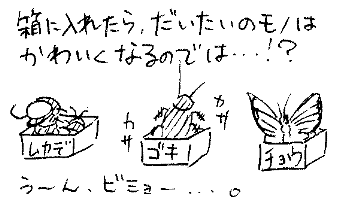 箱に入れたら、だいたいのモノは
かわいくなるのでは…!?
カサ
カサ
ムカデ
ゴキ
チョウ
うーん、ビミョー...。